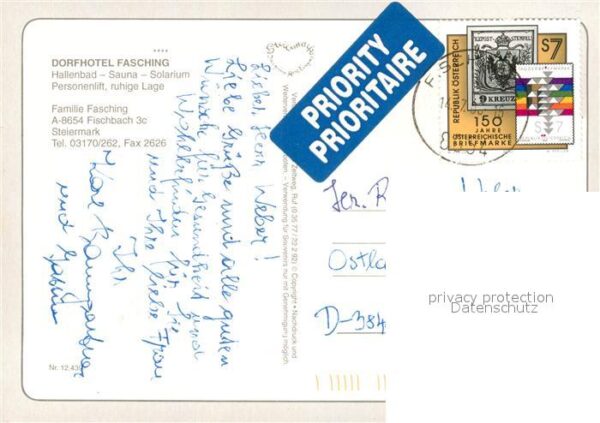 ****
DORFHOTEL FASCHING
Hallenbad – Sauna – Solarium
Personenlift, ruhige Lage
Familie Fasching
A-8654 Fischbach 3c
Steiermark
Tel. 03170/262, Fax 2626
Nr. 12.439
Lieber Herr Weber!
Liebe Grüße und alle guten
Wünsche für Gesundheit und
Wohlbefinden für Sie
und Ihre liebe Frau
Ihr
Karl Baumgartner
und
PRIORITY
PRIORITAIRE
REPUBLIK ÖSTERREICH
9 KREUZ
150
JAHRE
ÖSTERREICHISCHE
BRIEFMARKE
S7
Weber
Ostla
D-384
privacy protection
Datenschutz